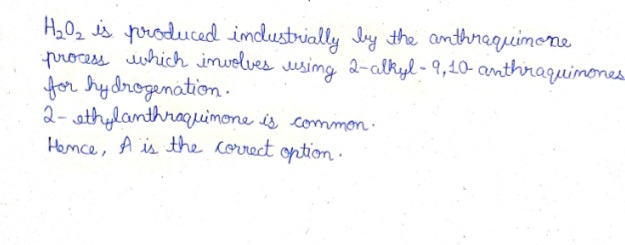 H₂O₂ is produced industrially by the anthraquinone
process which involves using 2-alkyl-9,10-anthraquinones
for hydrogenation.
2-ethylanthraquinone is common.
Hence, A is the correct option.